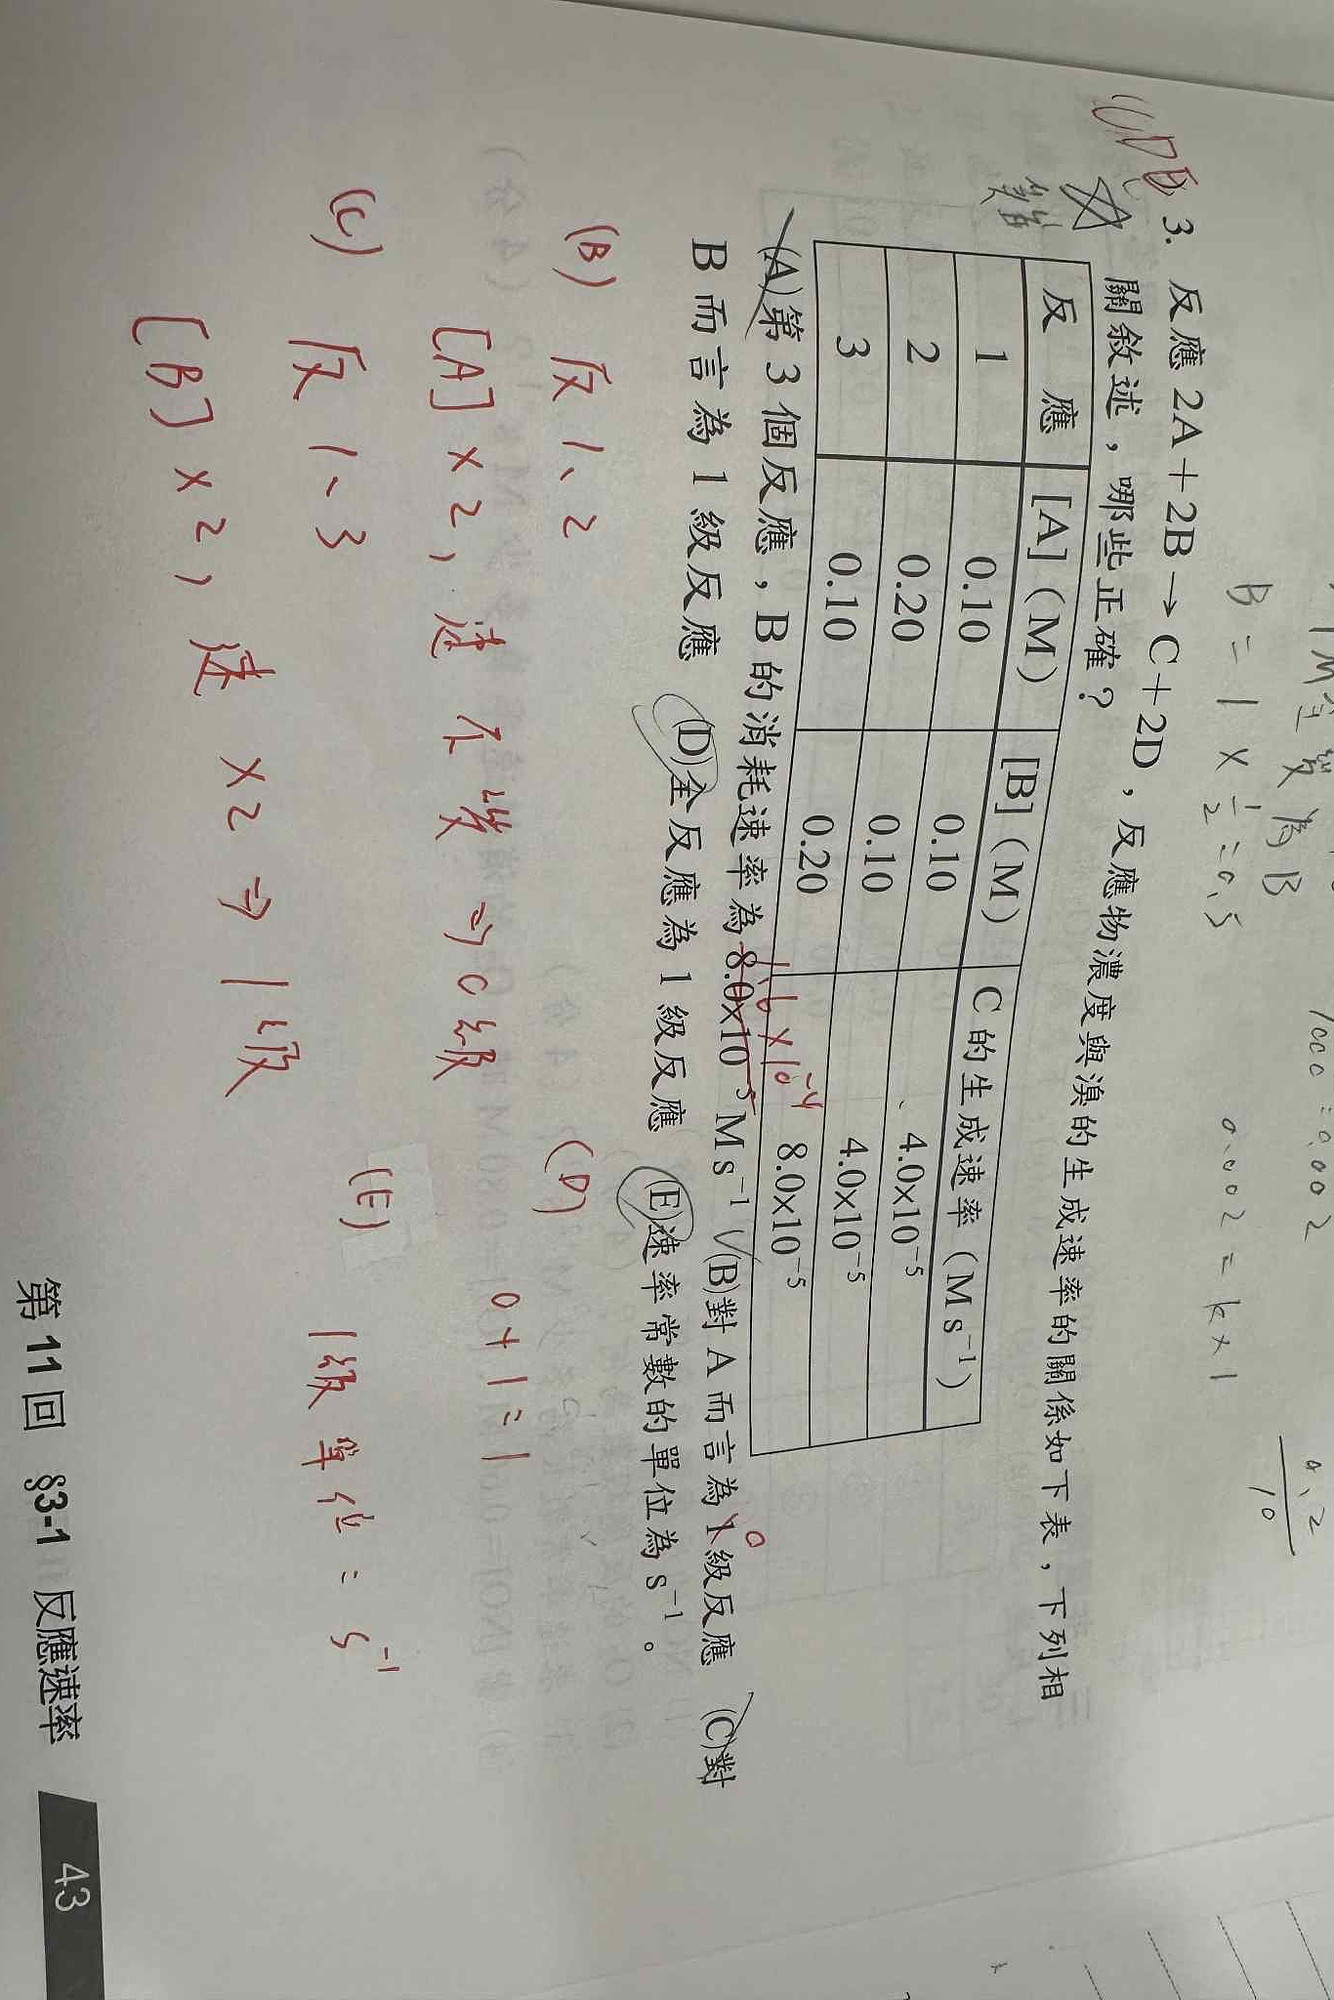 1M全變為B
B = 1 × 1/2 = 0.5
0.002 = k × 1
0.2
10
(C)DE
3. 反應 2A＋2B→C＋2D，反應物濃度與溴的生成速率的關係如下表，下列相
難
關敘述，哪些正確？
反 應 [A]（M） [B]（M） C 的生成速率（M s⁻¹）
1 0.10 0.10 4.0×10⁻⁵
2 0.20 0.10 4.0×10⁻⁵
3 0.10 0.20 8.0×10⁻⁵
1.6×10⁻⁴
(A)第 3 個反應，B 的消耗速率為 8.0×10⁻⁵ M s⁻¹ (B)對 A 而言為 1 級反應 (C)對
0
B 而言為 1 級反應 (D)全反應為 1 級反應 (E)速率常數的單位為 s⁻¹。
(B) 反 1、2
[A] × 2，速不變 ⇒ 0級
(C) 反 1、3
[B] × 2，速 ×2 ⇒ 1級
(D) 0+1=1
(E) 1級單位 = s⁻¹
第 11 回 §3-1 反應速率 43